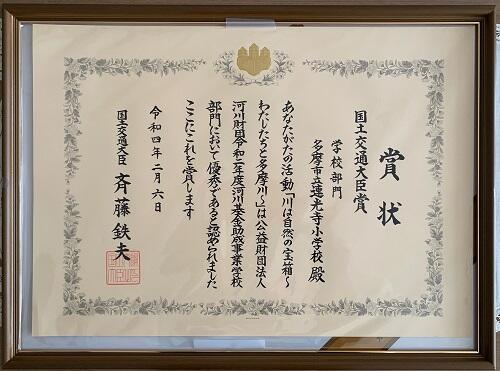 賞状
国土交通大臣賞
学校部門
多摩市立連光寺小学校 殿
あなたがたの活動「川は自然の宝箱～
わたしたちと多摩川～」は公益財団法人
河川財団令和二年度河川基金助成事業学校
部門において優秀であると認められました
ここにこれを賞します
令和四年二月六日
国土交通大臣 斉藤鉄夫